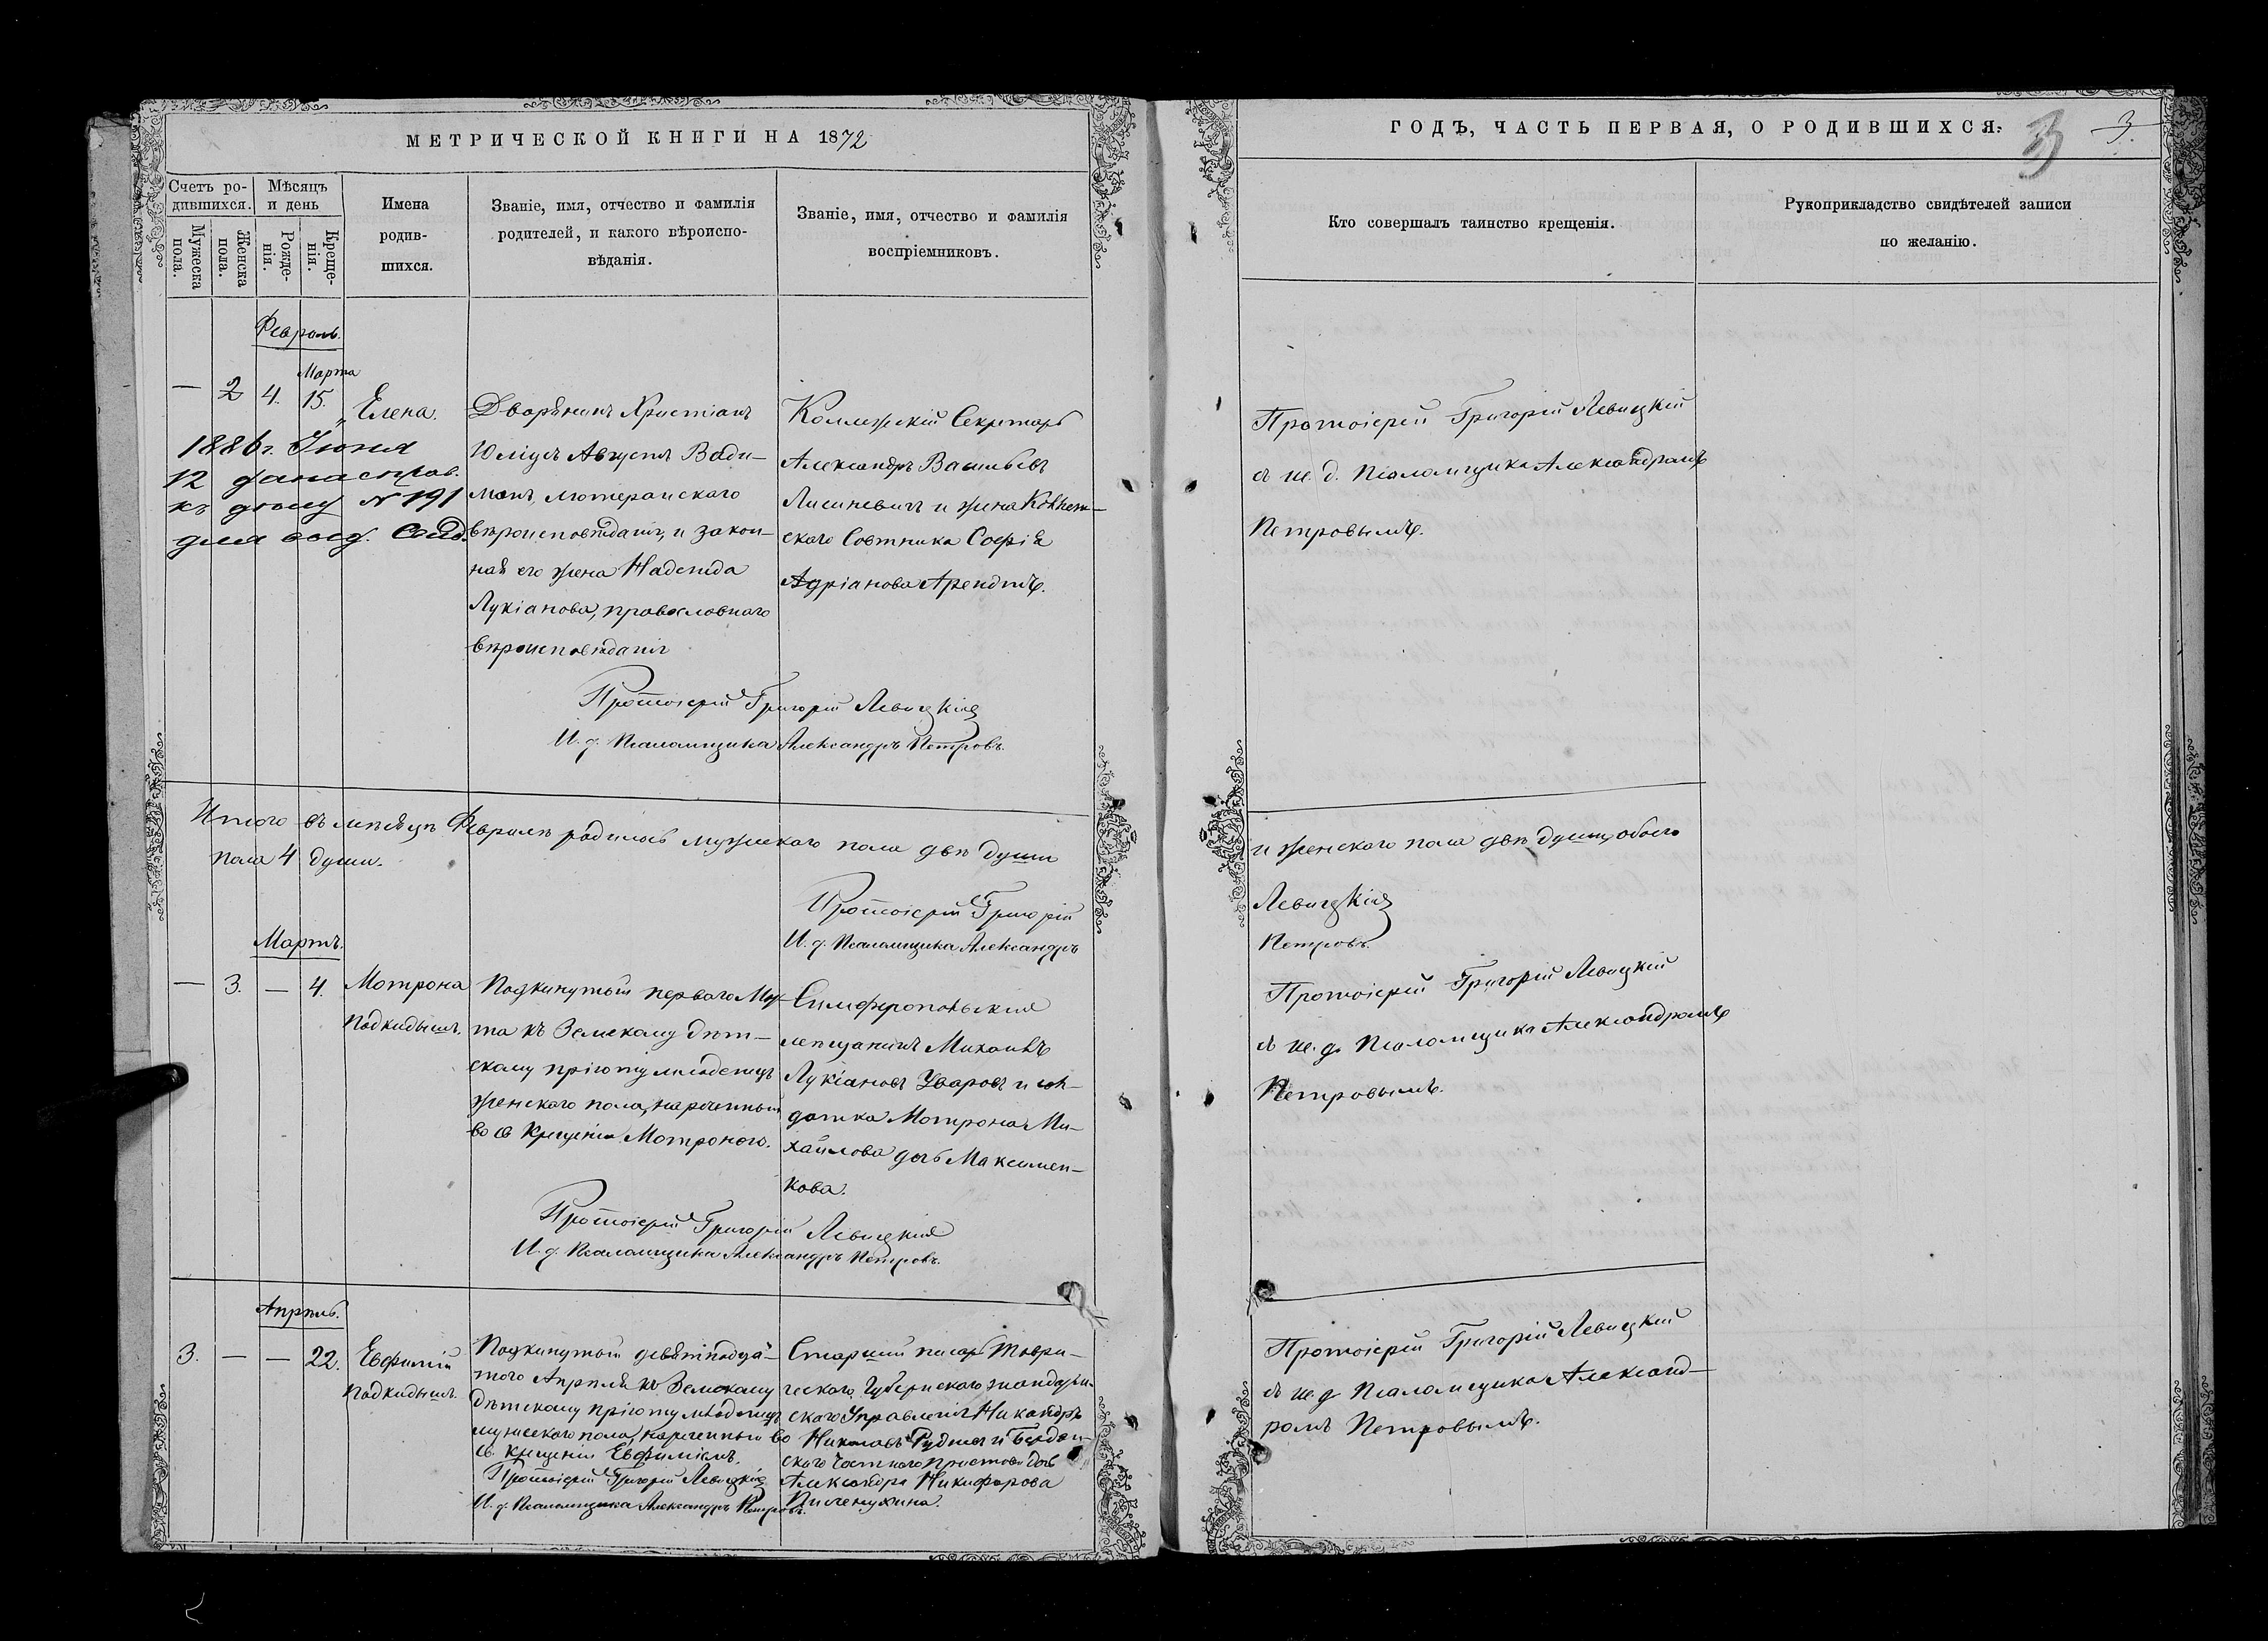 МЕТРИЧЕСКОЙ КНИГИ НА 1872
Счетъ ро-
дившихся.
Мѣсяцъ
и день
Мужеска
пола.
Женска
пола.
Рожде-
нія.
Креще-
нія.
Имена
родив-
шихся.
Званіе, имя, отчество и фамилія
родителей, и какого вѣроиспо-
вѣданія.
Званіе, имя, отчество и фамилія
воспріемниковъ.
Февраль.
Марта
— 2 4. 15.
Елена.
1886 г. Іюня
12 дана справ.
къ дѣлу № 191
для
Дворянинъ Христіанъ
Юліусъ Августъ Вади-
манъ, лютеранскаго
вѣроисповѣданія, и закон-
ная его жена Надежда
Лукіанова, православнаго
вѣроисповѣданія
Коллежскій Секретарь
Александръ Васильевъ
Лисиневичъ и жена
скаго Совѣтника Софія
Адріанова Арендтъ.
Протоіерей Григорій Левицкій
И. д. Псаломщика Александръ Петровъ.
Итого въ мѣсяцѣ Февралѣ родилось мужескаго пола двѣ души
пола 4 души.
Протоіерей Григорій
И. д. Псаломщика Александръ
Мартъ.
— 3. — 4.
Мотрона
подкидышъ.
Подкинутый перваго Мар-
та къ Земскому дѣт-
скому пріюту младенецъ
женскаго пола, нареченный
во св. Крещеніи Мотроною.
Симферопольскій
мещанинъ Михаилъ
Лукіановъ Уваровъ и сол-
датка Мотрона Ми-
хайлова дочь Максимен-
кова.
Протоіерей Григорій Левицкій
И. д. Псаломщика Александръ Петровъ.
Апрѣль.
3. — — 22.
Евфимій
подкидышъ.
Подкинутый девятнадца-
того Апрѣля къ Земскому
дѣтскому пріюту младенецъ
мужескаго пола, нареченный во
св. крещеніи Евфиміемъ.
Старшій писарь Таври-
ческаго Губернскаго жандарм-
скаго Управленія Никандръ
Николаевъ Рудневъ и Бердян-
скаго Частнаго Пристава дочь
Александра Никифорова
Протоіерей Григорій Левицкій
И. д. Псаломщика Александръ Петровъ.
ГОДЪ, ЧАСТЬ ПЕРВАЯ, О РОДИВШИХСЯ.
3
3.
Кто совершалъ таинство крещенія.
Рукоприкладство свидѣтелей записи
по желанію.
Протоіерей Григорій Левицкій
съ и. д. Псаломщика Александромъ
Петровымъ.
и женскаго пола двѣ души, обоего
Левицкій
Петровъ.
Протоіерей Григорій Левицкій
съ и. д. Псаломщика Александромъ
Петровымъ.
Протоіерей Григорій Левицкій
съ и. д. Псаломщика Александ-
ромъ Петровымъ.